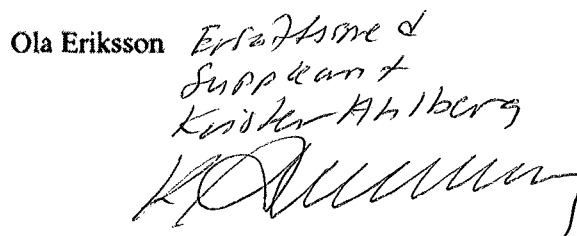 Ola Eriksson Ersatts med
Suppleant
Krister Ahlberg